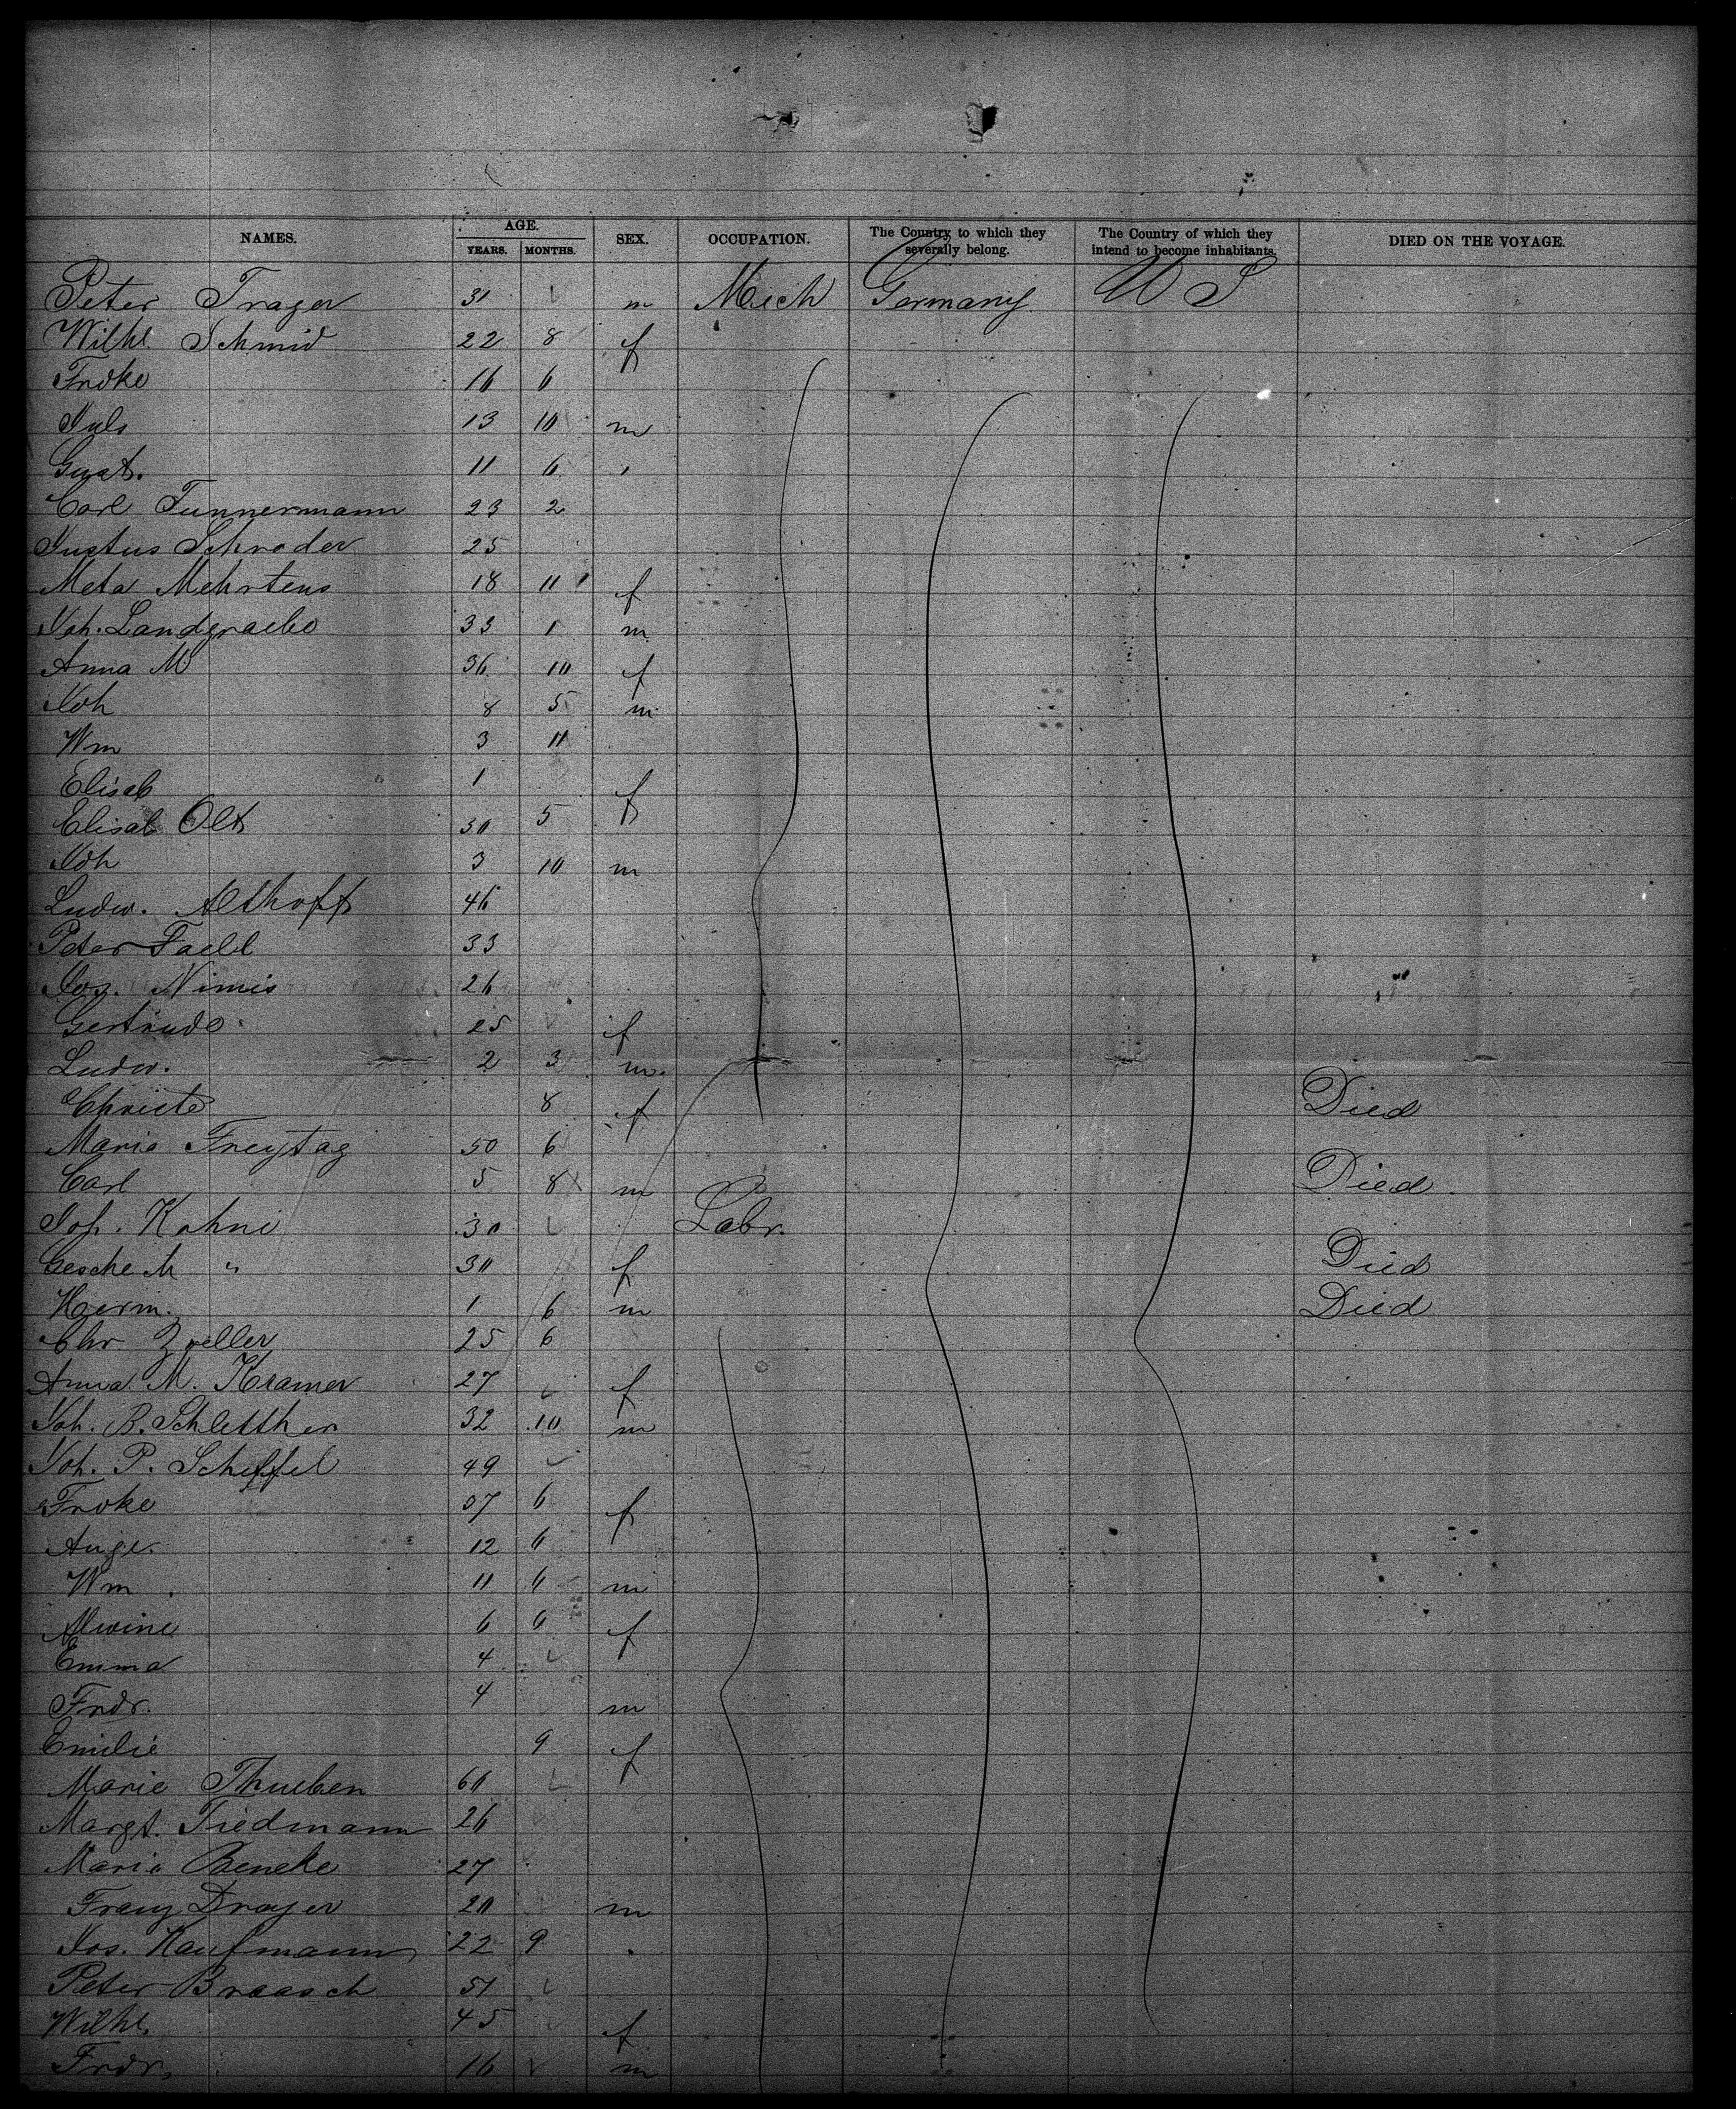 NAMES. AGE. YEARS. MONTHS. SEX. OCCUPATION. The Country to which they severally belong. The Country of which they intend to become inhabitants. DIED ON THE VOYAGE.
Peter Trager 31 m Mech Germany U S
Wilhl. Schmid 22 8 f
Frdke 16 6
Juls 13 10 m
Gust. 11 6
Carl Tunnermann 23 2
Justus Schroder 25
Meta Mehrtens 18 11 f
Joh. Landgraebe 33 1 m
Anna M 36 10 f
Joh 8 5 m
Wm 3 11
Elisab 1 f
Elisab Olt 30 5
Joh 3 10 m
Ludw. Althoff 46
Peter Faell 33
Jos. Nimis 26
Gertrude 25 f
Ludw. 2 3 m
Christe 8 f Died
Maria Freytag 50 6
Carl 5 8 m Died
Joh. Kohne 30 Labr.
Gesche M " 30 f Died
Herm. 1 6 m Died
Chr Zoeller 25 6
Anna M. Kramer 27 f
Joh. B. Schletther 32 10 m
Joh. P. Scheffel 49
Frdke 37 6 f
Auge. 12 6
Wm 11 6 m
Alwine 6 6 f
Emma 4
Frdr. 4 m
Emilie 9 f
Marie Thueben 60
Margt. Tiedmann 26
Maria Beneke 27
Franz Drayer 20 m
Jos. Kaufmann 22 9
Peter Braasch 51
Wilhl. 45 f
Frdr. 16 m